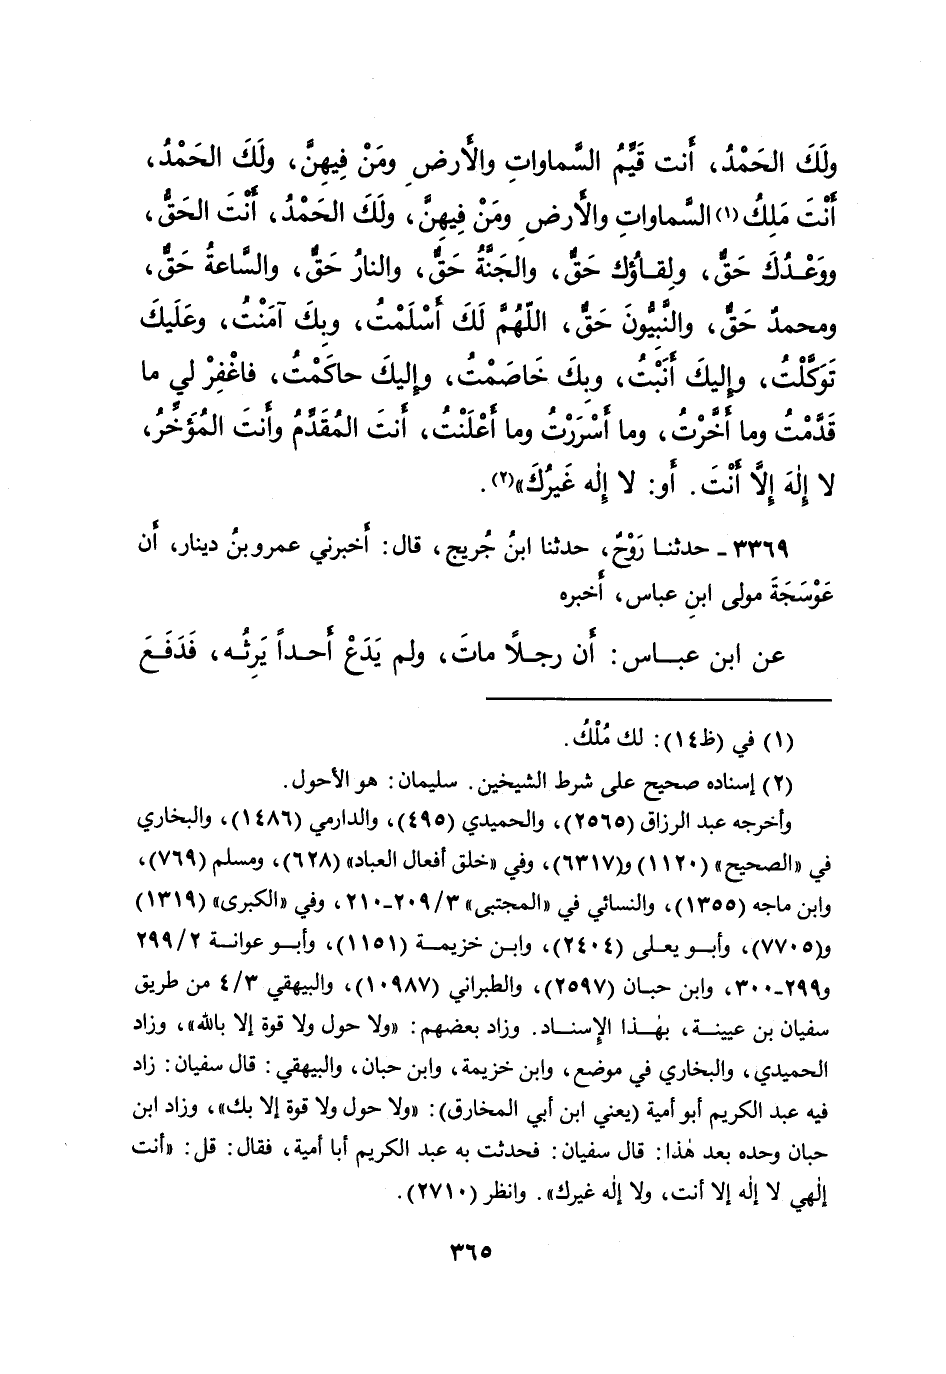 ولَكَ الحَمْدُ، أَنت قَيِّمُ السَّماواتِ والأَرضِ ومَنْ فِيهِنَّ، ولَكَ الحَمْدُ،
أَنْتَ مَلِكُ(١) السَّماواتِ والأَرضِ ومَنْ فِيهِنَّ، ولَكَ الحَمْدُ، أَنْتَ الحَقُّ،
ووَعْدُكَ حَقٌّ، ولِقاؤُك حَقٌّ، والجَنَّةُ حَقٌّ، والنارُ حَقٌّ، والسَّاعةُ حَقٌّ،
ومحمدٌ حَقٌّ، والنَّبِيُّونَ حَقٌّ، اللّهُمَّ لَكَ أَسْلَمْتُ، وبِكَ آمَنْتُ، وعَلَيكَ
تَوَكَّلْتُ، وإِليكَ أَنَبْتُ، وبِكَ خَاصَمْتُ، وإِليكَ حاكَمْتُ، فاغْفِرْ لي ما
قَدَّمْتُ وما أَخَّرْتُ، وما أَسْرَرْتُ وما أَعْلَنْتُ، أَنتَ المُقَدِّمُ وأَنتَ المُؤَخِّرُ،
لا إِلٰهَ إِلَّا أَنْتَ. أَو: لا إِلٰه غَيرُكَ»(٢).
٣٣٦٩ - حدثنا رَوْحٌ، حدثنا ابنُ جُريج، قال: أَخبرني عمرو بنُ دينار، أَن
عَوْسَجَةَ مولى ابنِ عباس، أَخبره
عن ابن عباس: أَن رجلًا ماتَ، ولم يَدَعْ أَحداً يَرِثُه، فَدَفَعَ
(١) في (ظ١٤): لك مُلْكُ.
(٢) إسناده صحيح على شرط الشيخين. سليمان: هو الأحول.
وأخرجه عبد الرزاق (٢٥٦٥)، والحميدي (٤٩٥)، والدارمي (١٤٨٦)، والبخاري
في «الصحيح» (١١٢٠) و(٦٣١٧)، وفي «خلق أفعال العباد» (٦٢٨)، ومسلم (٧٦٩)،
وابن ماجه (١٣٥٥)، والنسائي في «المجتبى» ٢٠٩/٣-٢١٠، وفي «الكبرى» (١٣١٩)
و(٧٧٠٥)، وأبو يعلى (٢٤٠٤)، وابن خزيمة (١١٥١)، وأبو عوانة ٢٩٩/٢
و٢٩٩-٣٠٠، وابن حبان (٢٥٩٧)، والطبراني (١٠٩٨٧)، والبيهقي ٤/٣ من طريق
سفيان بن عيينة، بهٰذا الإِسناد. وزاد بعضهم: «ولا حول ولا قوة إلا بالله»، وزاد
الحميدي، والبخاري في موضع، وابن خزيمة، وابن حبان، والبيهقي: قال سفيان: زاد
فيه عبد الكريم أبو أمية (يعني ابن أبي المخارق): «ولا حول ولا قوة إلا بك»، وزاد ابن
حبان وحده بعد هٰذا: قال سفيان: فحدثت به عبد الكريم أبا أمية، فقال: قل: «أنت
إلٰهي لا إلٰه إلا أنت، ولا إلٰه غيرك». وانظر (٢٧١٠).
٣٦٥